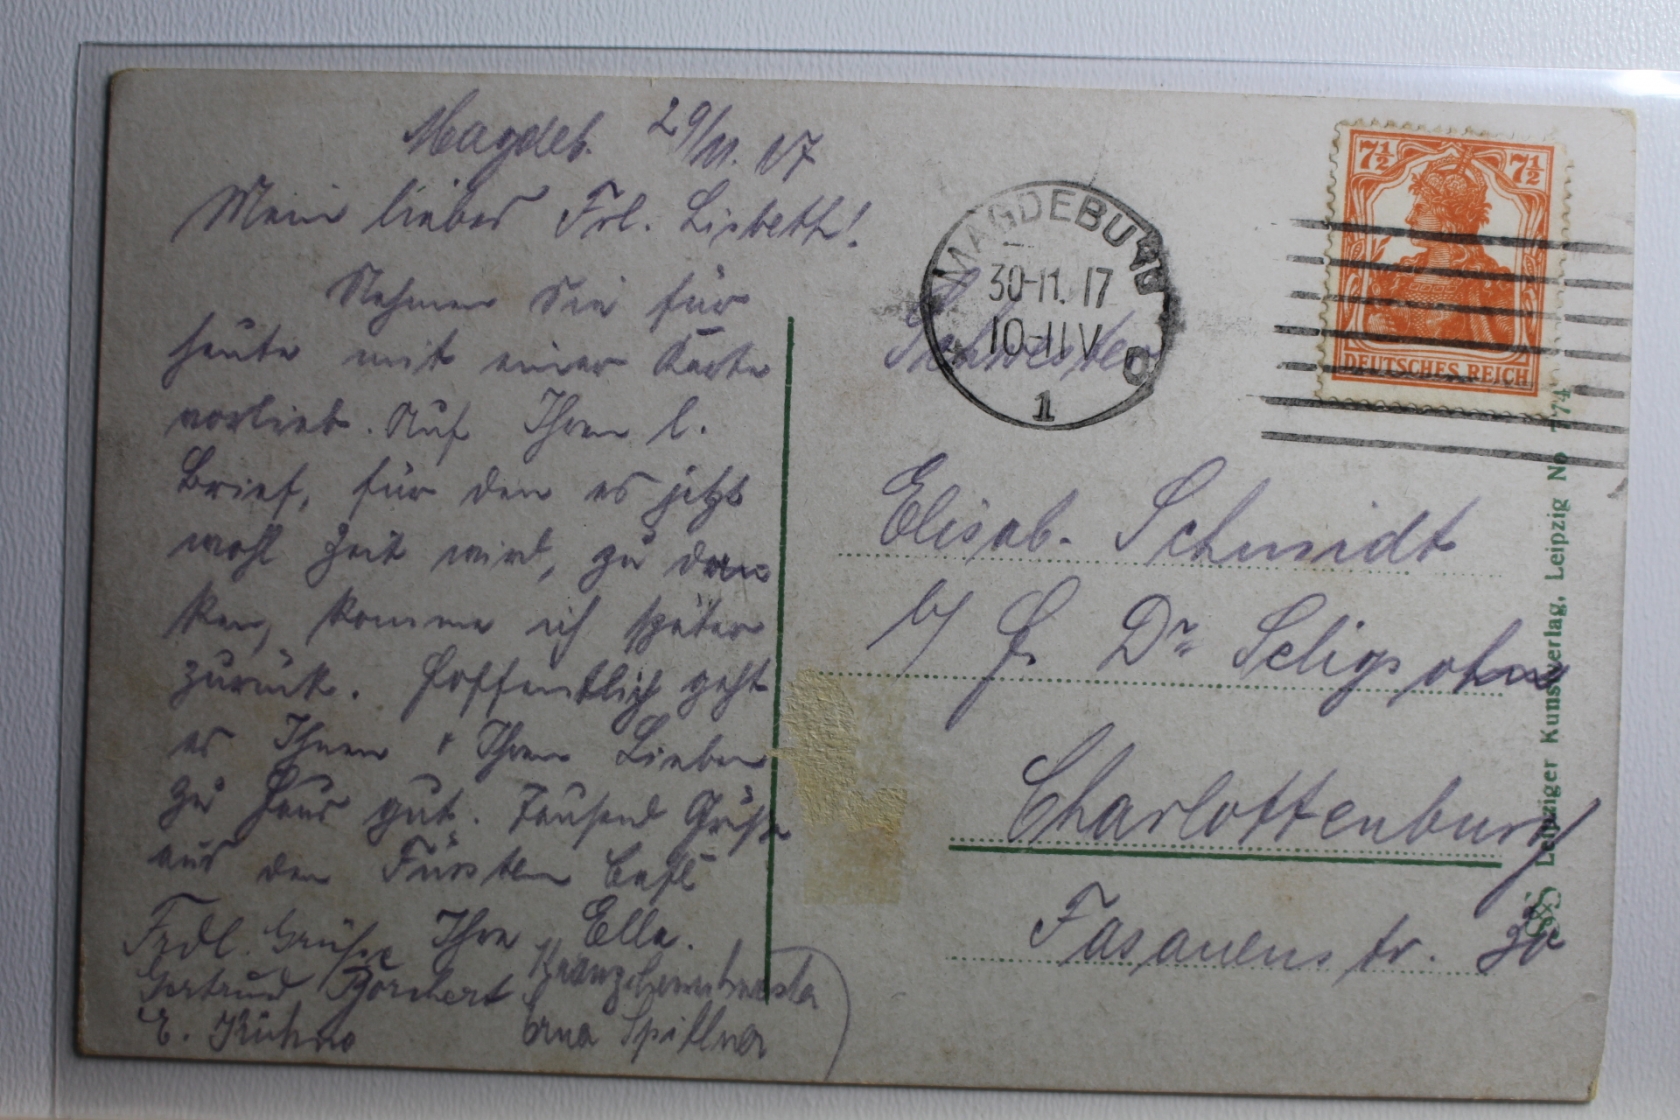 Magdeb. 29/11. 17
Mein liebes Frl. Lisbeth!
Nehmen Sie für
heute mit einer Karte
vorlieb. Auf Ihren l.
Brief, für den es jetzt
wohl Zeit wird, zu dan
ken, komme ich später
zurück. Hoffentlich geht
es Ihnen + Ihren Lieben
zu Haus gut. Tausend Grüße
aus dem Fürsten Café
Ihre Ella.
Frdl. Grüße
Gertrud Borchert
E. Kühne
Erna Spillner
MAGDEBURG
30-11. 17
10-11 V
1
7½ 7½
DEUTSCHES REICH
Schwester
Elisab. Schmidt
b/ H. Dr. Seligsohn
Charlottenburg
Fasanenstr. 30
Leipziger Kunstverlag, Leipzig No 774